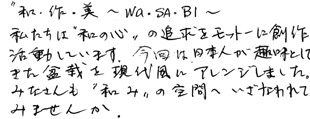 "和・作・美 ～ WA・SA・BI ～
私たちは"和の心"の追求をモットーに創作
活動しています。今回は日本人が趣味として
きた盆栽を現代風にアレンジしました。
みなさんも"和み"の空間へいざなわれて
みませんか。